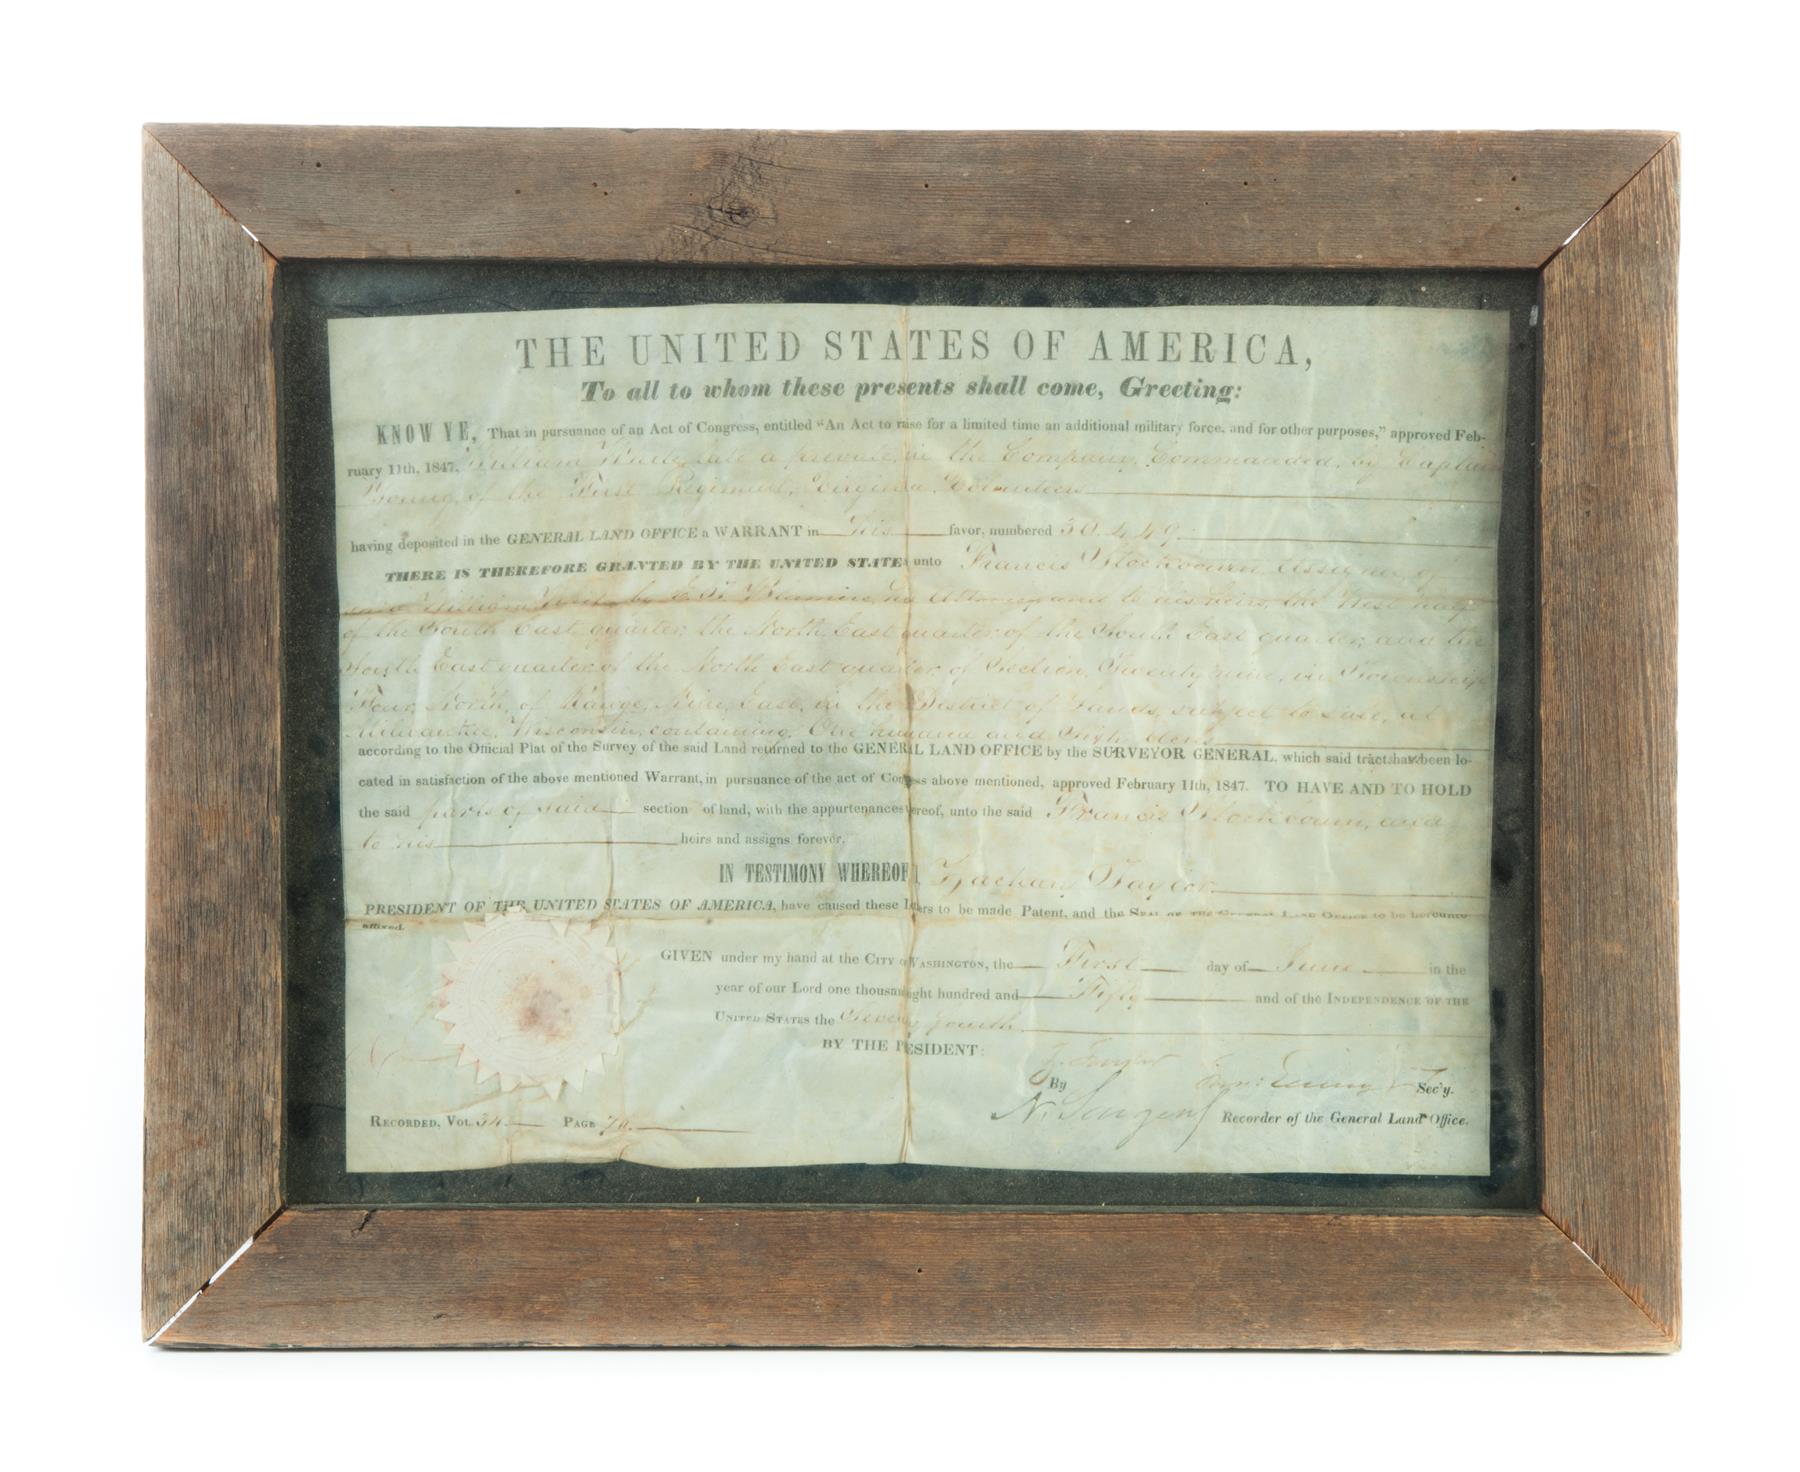 THE UNITED STATES OF AMERICA,
To all to whom these presents shall come, Greeting:
KNOW YE, That in pursuance of an Act of Congress, entitled "An Act to raise for a limited time an additional military force, and for other purposes," approved Feb-
ruary 11th, 1847, William White late a private in the Company, Commanded, by Captain
of the First Regiment, Virginia Volunteers
having deposited in the GENERAL LAND OFFICE a WARRANT in his favor, numbered 30.449
THERE IS THEREFORE GRANTED BY THE UNITED STATES unto Francis Assignee of
said William White by his Attorney and to his heirs, the West half
of the South East quarter, the North East quarter of the South East quarter, and the
South East quarter of the North East quarter of Section, Twenty nine, in Township
Four, North, of Range, Nine, East, in the District of Lands, subject to sale, at
Milwaukee, Wisconsin, containing, One hundred and Sixty Acres
according to the Official Plat of the Survey of the said Land returned to the GENERAL LAND OFFICE by the SURVEYOR GENERAL, which said tracts have been lo-
cated in satisfaction of the above mentioned Warrant, in pursuance of the act of Congress above mentioned, approved February 11th, 1847. TO HAVE AND TO HOLD
the said parts of said section of land, with the appurtenances thereof, unto the said Francis and
to his heirs and assigns forever.
IN TESTIMONY WHEREOF I, Zachary Taylor
PRESIDENT OF THE UNITED STATES OF AMERICA, have caused these Letters to be made Patent, and the SEAL OF THE GENERAL LAND OFFICE to be hereunto
affixed.
GIVEN under my hand at the CITY OF WASHINGTON, the First day of June in the
year of our Lord one thousand eight hundred and Fifty and of the INDEPENDENCE OF THE
UNITED STATES the Seventy fourth
BY THE PRESIDENT: Z. Taylor
By Ewing Sec'y.
N. Sargent Recorder of the General Land Office.
RECORDED, VOL. 34. PAGE